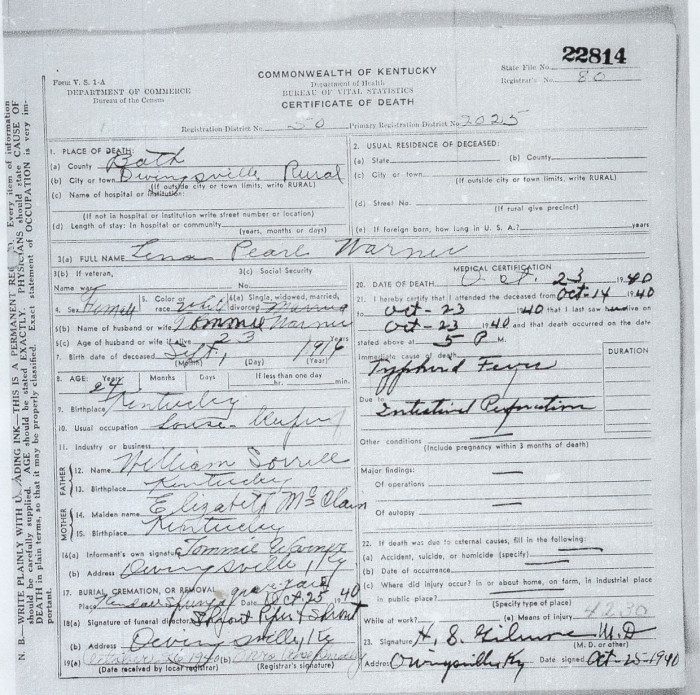 22814
COMMONWEALTH OF KENTUCKY
Form V. S. 1-A
DEPARTMENT OF COMMERCE
Bureau of the Census
Department of Health
BUREAU OF VITAL STATISTICS
CERTIFICATE OF DEATH
State File No.
Registrar's No. 80
Registration District No. 50 Primary Registration District No. 7025
N. B.—WRITE PLAINLY WITH UNFADING INK—THIS IS A PERMANENT RECORD. Every item of information
should be carefully supplied. AGE should be stated EXACTLY. PHYSICIANS should state CAUSE OF
DEATH in plain terms, so that it may be properly classified. Exact statement of OCCUPATION is very im-
portant.
1. PLACE OF DEATH:
(a) County Bath
(b) City or town Owingsville Rural
(If outside city or town limits, write RURAL)
(c) Name of hospital or institution:
(If not in hospital or institution write street number or location)
(d) Length of stay: In hospital or community
(years, months or days)
2. USUAL RESIDENCE OF DECEASED:
(a) State (b) County
(c) City or town
(If outside city or town limits, write RURAL)
(d) Street No.
(If rural give precinct)
(e) If foreign born, how long in U. S. A.? years
3(a) FULL NAME Lena Pearl Warner
3(b) If veteran,
Name war
3(c) Social Security
No.
4. Sex Female 5. Color or race White 6(a) Single, widowed, married, divorced Married
6(b) Name of husband or wife Tommie Warner
6(c) Age of husband or wife if alive 23 Years
7. Birth date of deceased Sept 1 1916
(Month) (Day) (Year)
8. AGE: Years Months Days If less than one day
24 hr. min.
9. Birthplace Kentucky
10. Usual occupation House
11. Industry or business
FATHER
12. Name William Sorrell
13. Birthplace Kentucky
MOTHER
14. Maiden name Elizabeth McClain
15. Birthplace Kentucky
16(a) Informant's own signature Tommie Warner
(b) Address Owingsville, Ky
17. BURIAL, CREMATION, OR REMOVAL
Place Springs grave yard Date Oct-25 1940
18(a) Signature of funeral director
(b) Address Owingsville, Ky
19(a) October 26 1940 (b) Mrs
(Date received by local registrar) (Registrar's signature)
MEDICAL CERTIFICATION
20. DATE OF DEATH Oct. 23 1940
21. I hereby certify that I attended the deceased from Oct-14 1940
to Oct-23 1940 that I last saw h alive on
Oct-23 1940 and that death occurred on the date
stated above at 5 P M.
Immediate cause of death
DURATION
Typhoid Fever
Due to Intestinal Perforation
Other conditions
(Include pregnancy within 3 months of death)
Major findings:
Of operations
Of autopsy
22. If death was due to external causes, fill in the following:
(a) Accident, suicide, or homicide (specify)
(b) Date of occurrence
(c) Where did injury occur? in or about home, on farm, in industrial place
in public place?
(Specify type of place)
While at work? (e) Means of injury 4230
23. Signature H. S. Gilmore M.D
(M. D. or other)
Address Owingsville, Ky Date signed Oct-25-1940